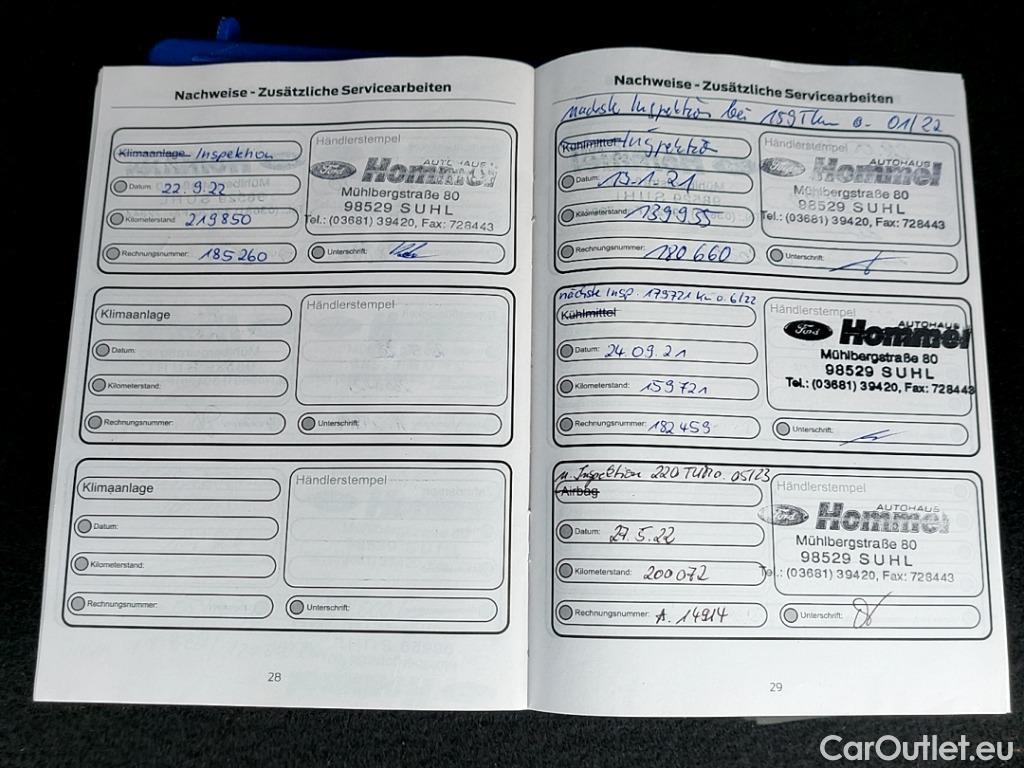 Nachweise - Zusätzliche Servicearbeiten
Klimaanlage Inspektion
Datum: 22.9.22
Kilometerstand: 219850
Rechnungsnummer: 185260
Händlerstempel
Ford AUTOHAUS
Hommel
Mühlbergstraße 80
98529 SUHL
Tel.: (03681) 39420, Fax: 728443
Unterschrift:
Klimaanlage
Datum:
Kilometerstand:
Rechnungsnummer:
Händlerstempel
Unterschrift:
Klimaanlage
Datum:
Kilometerstand:
Rechnungsnummer:
Händlerstempel
Unterschrift:
28
Nachweise - Zusätzliche Servicearbeiten
nächste Inspektion bei 159Tkm o. 01/22
Kühlmittel Inspektion
Datum: 13.1.21
Kilometerstand: 139955
Rechnungsnummer: 180660
Händlerstempel
Ford AUTOHAUS
Hommel
Mühlbergstraße 80
98529 SUHL
Tel.: (03681) 39420, Fax: 728443
Unterschrift:
nächste Insp. 179721 km o. 6/22
Kühlmittel
Datum: 24.09.21
Kilometerstand: 159721
Rechnungsnummer: 182459
Händlerstempel
Ford AUTOHAUS
Hommel
Mühlbergstraße 80
98529 SUHL
Tel.: (03681) 39420, Fax: 728443
Unterschrift:
n. Inspektion 220 o. 05/23
Airbag
Datum: 27.5.22
Kilometerstand: 200072
Rechnungsnummer: A. 14914
Händlerstempel
Ford AUTOHAUS
Hommel
Mühlbergstraße 80
98529 SUHL
Tel.: (03681) 39420, Fax: 728443
Unterschrift:
29
CarOutlet.eu